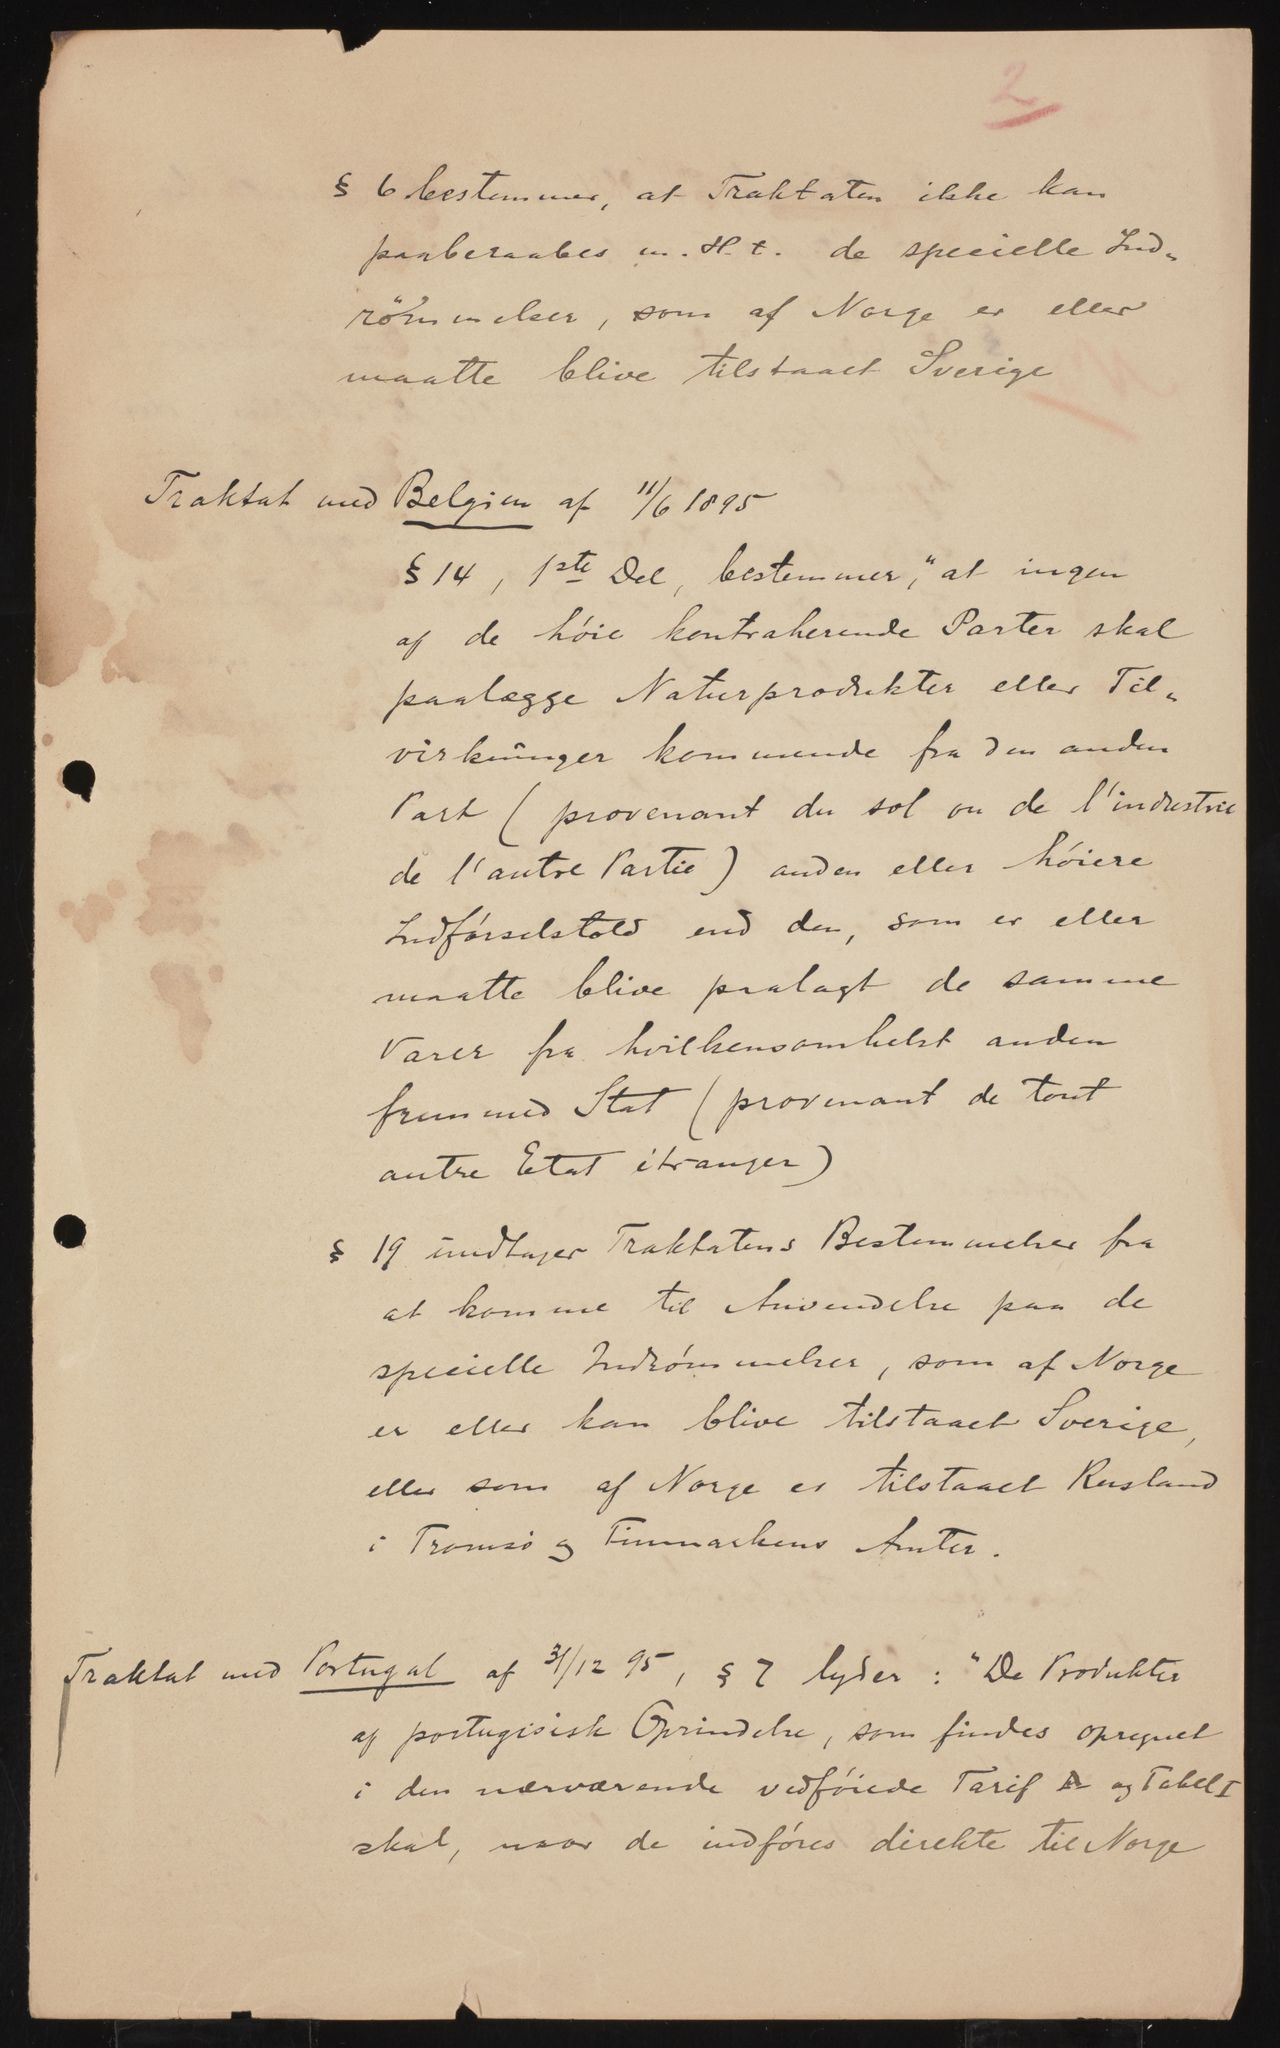 2
§ 6 bestemmer, at Traktaten ikke kan
paaberaabes m. H. t. de specielle Ind-
rømmelser, som af Norge er eller
maatte blive tilstaaet Sverige
Traktat med Belgien af 11/6 1895
§ 14, 1ste Del, bestemmer, "at ingen
af de høie kontraherende Parter skal
paalægge Naturprodukter eller Til-
virkninger kommende fra den anden
Part (provenant du sol ou de l'industrie
de l'autre Partie) anden eller høiere
Indførselstold end den, som er eller
maatte blive paalagt de samme
Varer fra hvilkensomhelst anden
fremmed Stat (provenant de tout
autre Etat étranger)
§ 19 undtager Traktatens Bestemmelser fra
at komme til Anvendelse paa de
specielle Indrømmelser, som af Norge
er eller kan blive tilstaaet Sverige,
eller som af Norge er tilstaaet Rusland
i Tromsø og Finmarkens Amter.
Traktat med Portugal af 31/12 95, § 7 lyder: "De Produkter
af portugisisk Oprindelse, som findes opregnet
i den nærværende vedføiede Tarif A og Tabel I
skal, naar de indføres direkte til Norge